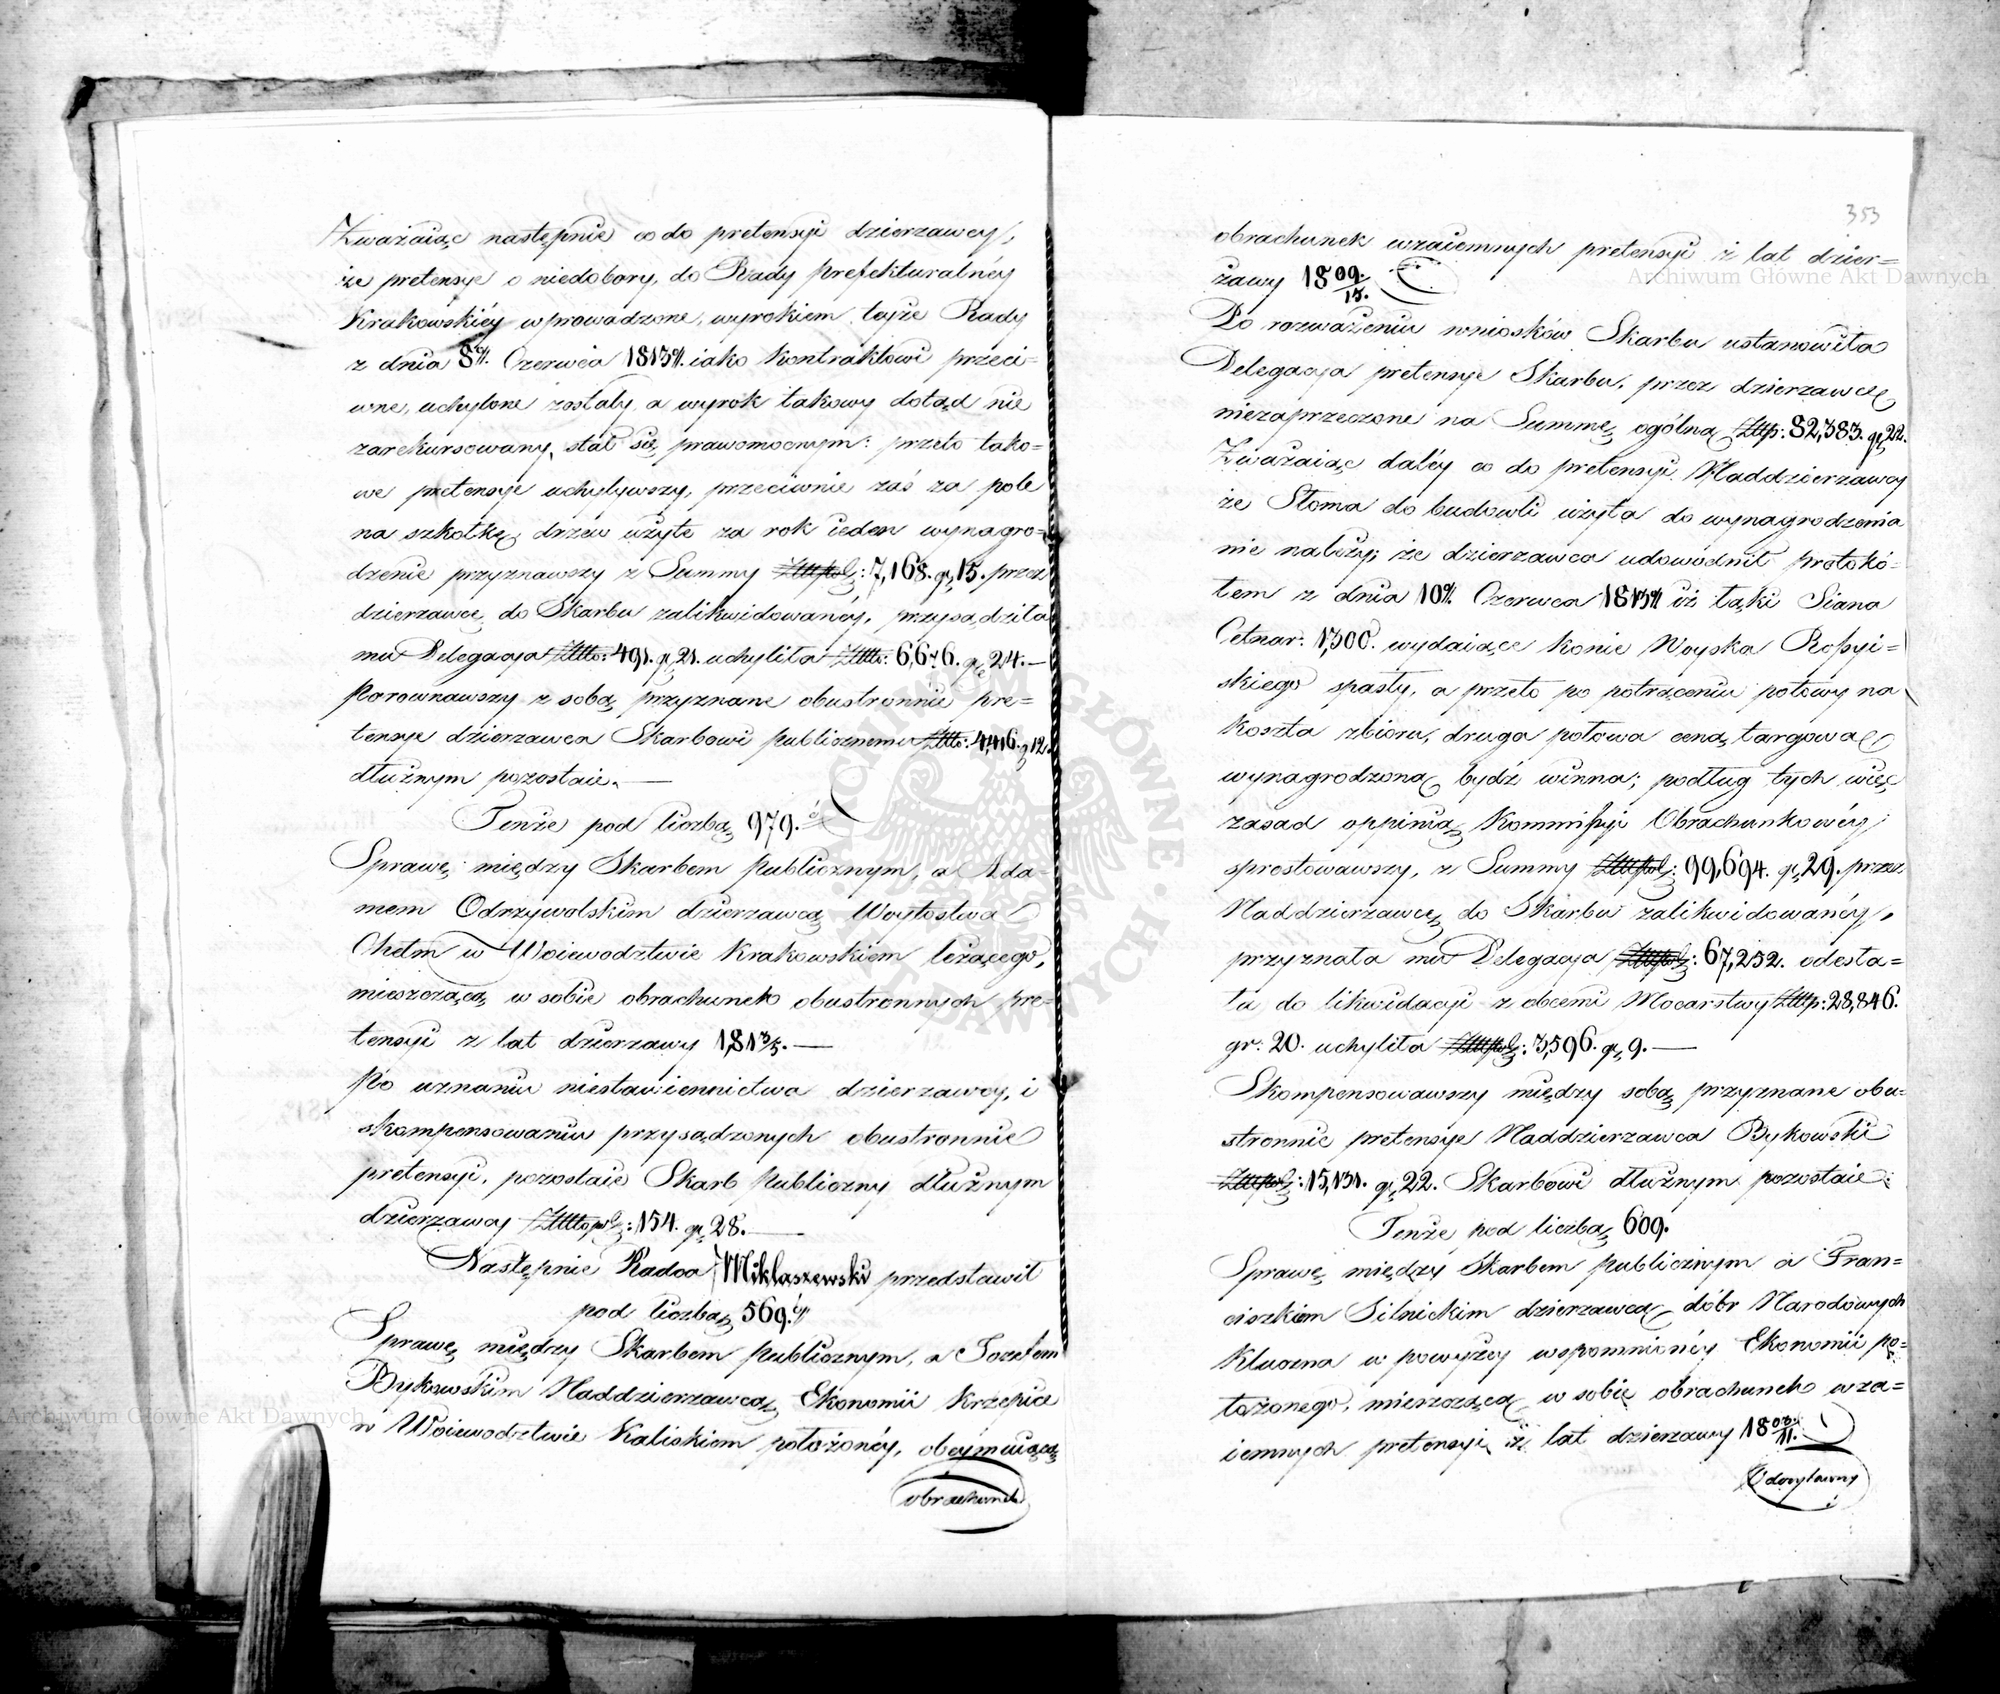 Zważaiąc następnie co do pretensyi dzierzawcy,
że pretensye o niedobory, do Rady Prefekturalnéy
Krakowskiéy wprowadzone, wyrokiem teyże Rady
z dnia 8º. Czerwca 1813º. iako Kontraktowi przeci=
wne, uchylone zostały, a wyrok takowy dotąd nie
zarekursowany, stał się prawomocnym: przeto tako=
we pretensye uchyliwszy, przeciwnie zaś za pole
na szkołkę drzew użyte za rok ieden wynagro=
dzenie przyznawszy z Summy Złtpol: 7,168. gr. 15. przez
dzierzawcę do Skarbu zalikwidowanéy, przysądziła
mu Delegacya Złtto: 491. gr. 21. uchyliła Złtto: 6,676. gr. 24.—
Porownawszy z sobą przyznane obustronnie pre=
tensye dzierzawca Skarbowi publicznemu Złtto: 4,416. gr 12.
dłużnym pozostaie.—
Tenże pod liczbą 979.
Sprawę między Skarbem Publicznym, a Ada=
mem Odrzywolskim dzierzawcą Woytostwa
Chełm w Woiewodztwie Krakowskiem leżącego,
mieszczącą w sobie obrachunek obustronnych pre=
tensyi z lat dzierzawy 1813/5.—
Po uznaniu niestawiennictwa dzierzawcy, i
skompensowaniu przysądzonych obustronnie
pretensyi, pozostaie Skarb Publiczny dłużnym
dzierzawcy Złttopol: 154. gr. 28.—
Następnie Radca Miklaszewski przedstawił
pod liczbą 569.
Sprawę między Skarbem Publicznym, a Jozefem
Bykowskim Naddzierzawcą Ekonomii Krzepice
w Woiewodztwie Kaliskiem położonéy, obeymuiącą
obrachunek
353
obrachunek wzaiemnych pretensyi z lat dzier=
żawy 1809./15.
Po rozważeniu wniosków Skarbu ustanowiła
Delegacya pretensye Skarbu, przez dzierzawcę
niezaprzeczone na Summę ogólną Złtp: 82,383. gr 22.
Zważaiąc daléy co do pretensyi Naddzierzawcy
że Słoma do budowli użyta do wynagrodzenia
nie należy; że dzierzawca udowodnił protokó=
łem z dnia 10º. Czerwca 1813º iż łąki Siana
Cetnar: 1,300. wydaiące konie Woyska Rossyi=
skiego spasły, a przeto po potrąceniu połowy na
koszta zbioru, druga połowa ceną targową
wynagrodzoną bydź winna; podług tych więc
zasad oppinią Kommissyi Obrachunkowéy
sprostowawszy, z Summy Złttpol: 99,694. gr. 29. przez
Naddzierzawcę do Skarbu zalikwidowanéy,
przyznała mu Delegacya Złttpol: 67,252. odesła=
ła do likwidacyi z obcemi Mocarstwy Złttp: 28,846.
gr: 20. uchyliła Złttpol: 3,596. gr. 9.—
Skompensowawszy między sobą przyznane obu=
stronnie pretensye Naddzierzawca Bykowski
Złttpol: 15,131. gr. 22. Skarbowi dłużnym pozostaie.
Tenże pod liczbą 609.
Sprawę między Skarbem publicznym a Fran=
ciszkiem Silnickim dzierzawcą dóbr Narodowych
Kluczna w powyżéy wspomnionéy Ekonomii po=
łożonego, mieszczącą w sobie obrachunek wza=
iemnych pretensyi z lat dzierzawy 1808/11.
Odczytawszy
Archiwum Główne Akt Dawnych
Archiwum Główne Akt Dawnych
ARCHIWUM GŁÓWNE AKT DAWNYCH